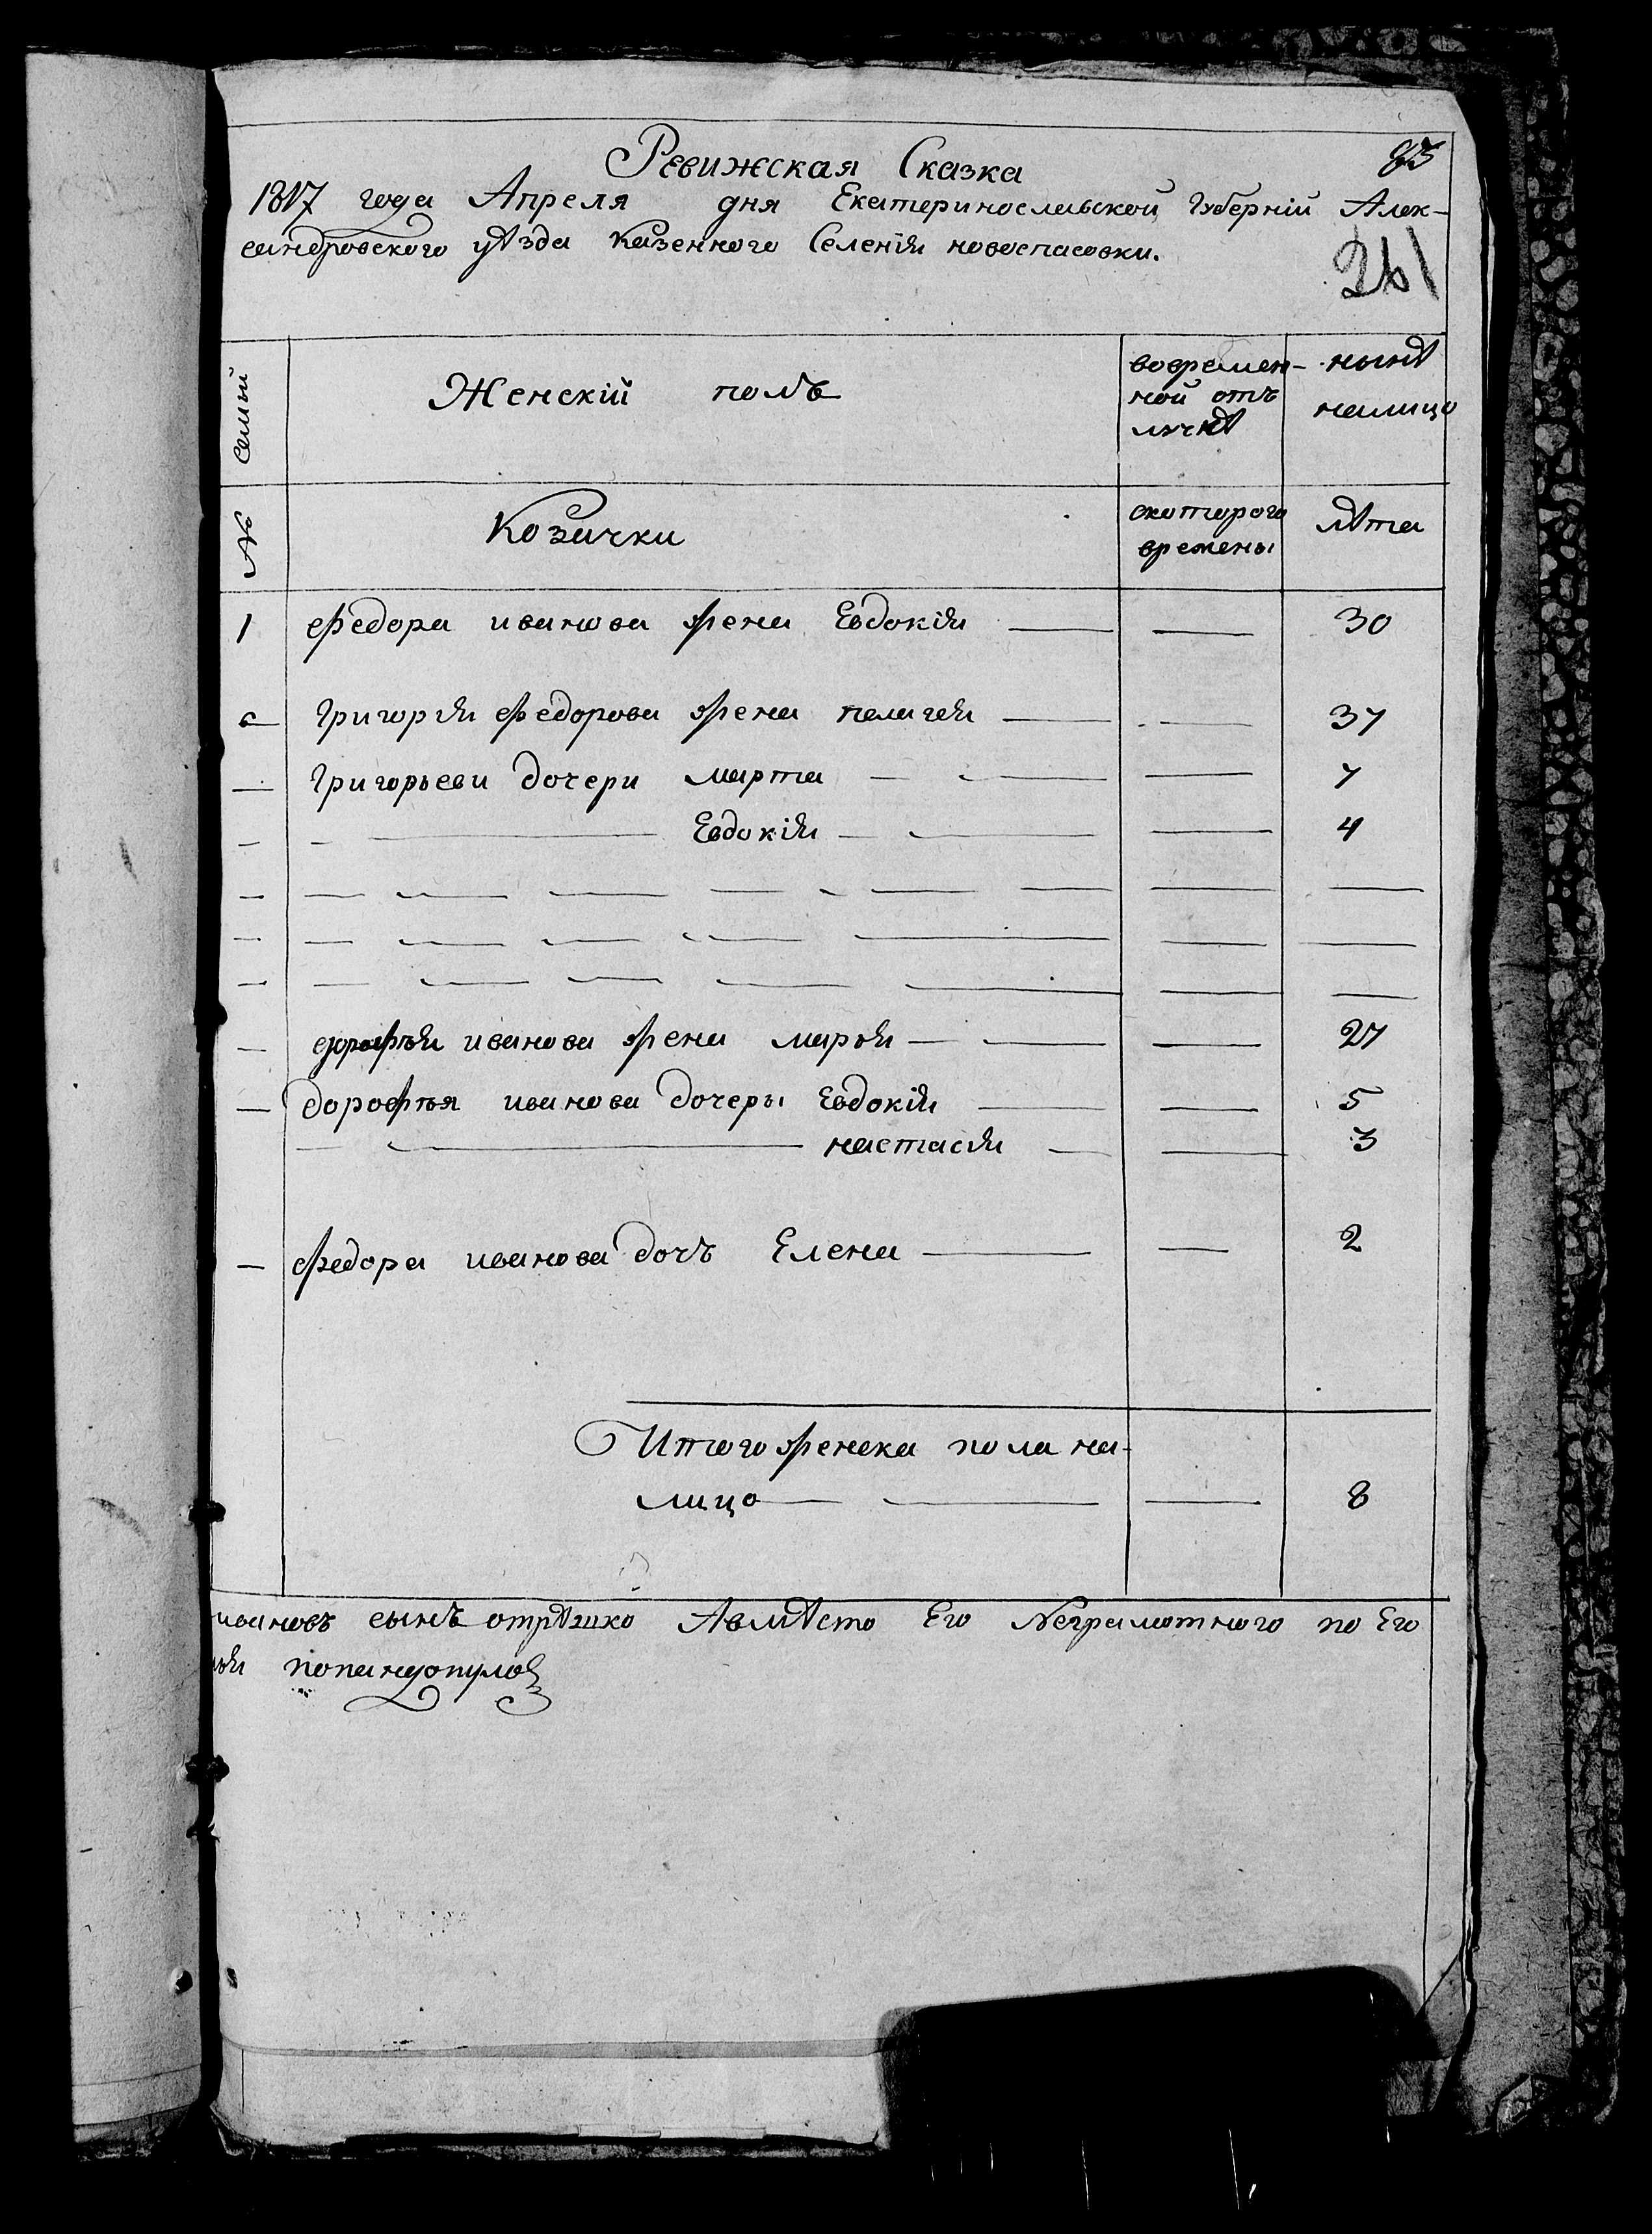 Ревижская Сказка
85
1817 года Апреля дня Екатеринославской Губерніи Алек-
сандровского уѣзда Казенного Селенія новоспасовки.
261
семьи
Женскій полъ
вовремен-
ной отъ
лучкѣ
нынѣ
налицо
№
Козачки
скоторого
времены
лѣта
1 Федора иванова жена Евдокія — — 30
Григорія Федорова жена пелагея — — 37
— Григорьеви дочери марта — — — 7
— — — Евдокія — — — 4
— — — — — — — — — —
— — — — — — — —
— — — — — — — —
— дорофѣя иванова жена марья — — — 27
— дорофѣя иванова дочеры Евдокія — — 5
— — настасія — — 3
— Федора иванова дочъ Елена — — 2
Итого женска пола на-
лицо — — — 8
ивановъ сынъ отрѣшко Авмѣсто Его Неграмотного по Его
попандопулов